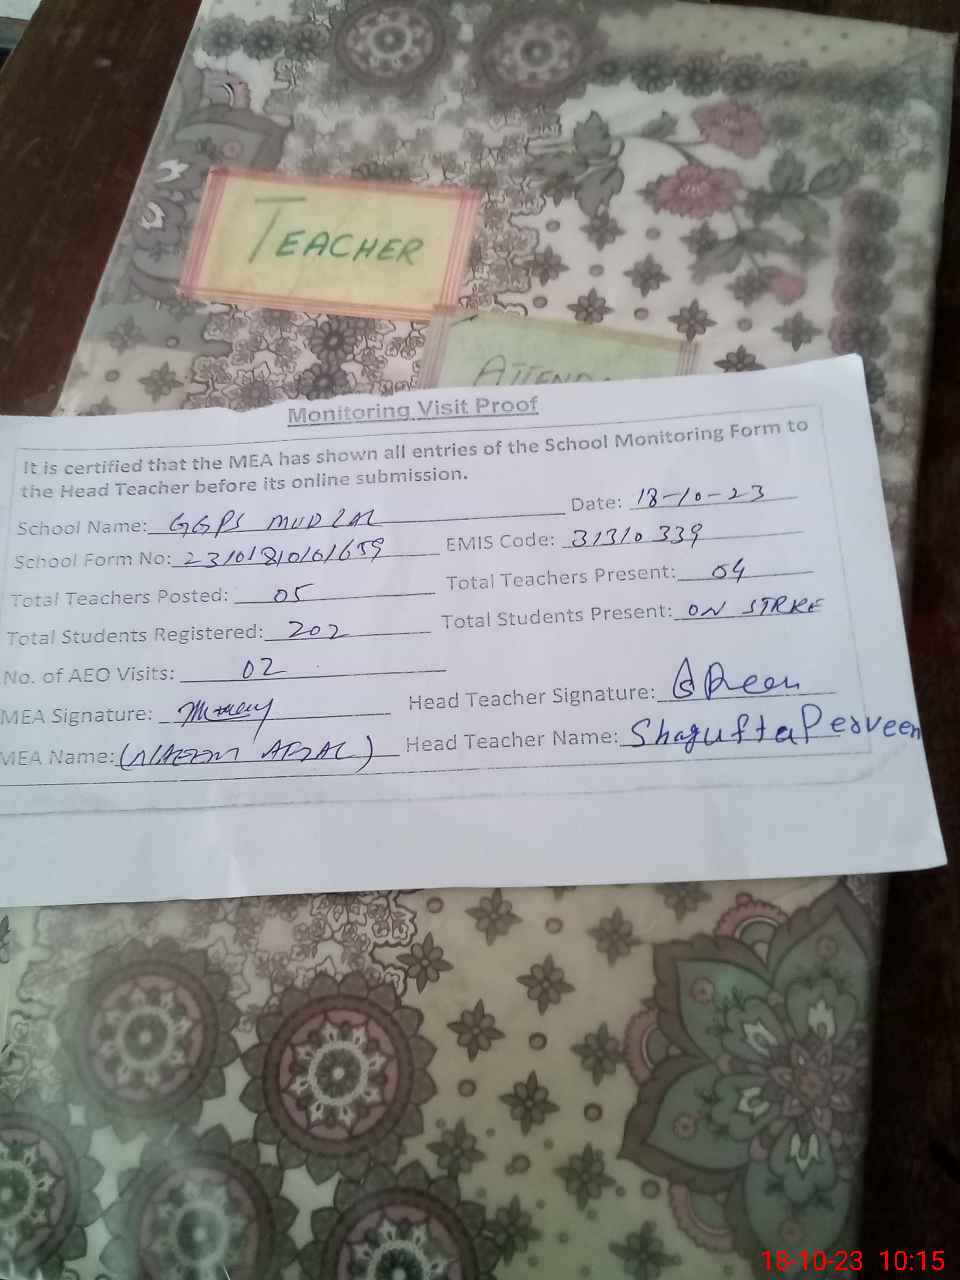 TEACHER
ATTENDA
Monitoring Visit Proof
It is certified that the MEA has shown all entries of the School Monitoring Form to
the Head Teacher before its online submission.
School Name: GGPS MUDLAL Date: 18-10-23
School Form No: 23101810101659 EMIS Code: 31310339
Total Teachers Posted: 05 Total Teachers Present: 04
Total Students Registered: 202 Total Students Present: ON STRKE
No. of AEO Visits: 02
MEA Signature: Head Teacher Signature:
MEA Name: (NAEEM AFZAL) Head Teacher Name: Shagufta Perveen
18-10-23 10:15